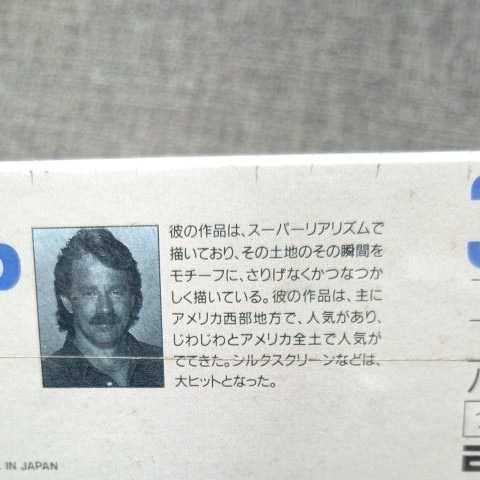 彼の作品は、スーパーリアリズムで
描いており、その土地のその瞬間を
モチーフに、さりげなくかつなつか
しく描いている。彼の作品は、主に
アメリカ西部地方で、人気があり、
じわじわとアメリカ全土で人気が
でてきた。シルクスクリーンなどは、
大ヒットとなった。
IN JAPAN